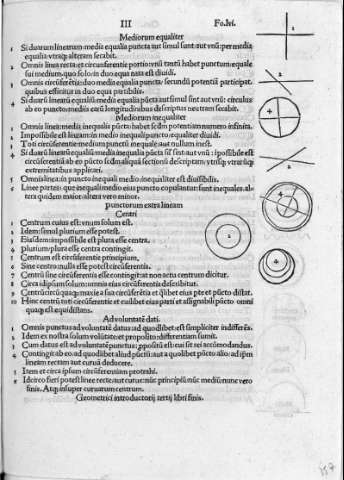 III Fo.lvi.
Mediorum equaliter
1 Si duarum linearum media equalia puncta aut simul sunt: aut vnũ: per media
equalia vtraq; alteram secabit.
2 Omnis linea recta: et circunferentie portio vnũ tantũ habet punctum: equale
sui medium: quo solo in duo equa nata est diuidi.
3 Omnis circũferẽtia: duo media equalia puncta: secundũ potentiã participat.
quibus efficitur in duo equa partibilis.
4 Si duarũ linearũ equaliũ media equalia pũcta aut simul sint aut vnũ: circulus
ab eo puncto: medijs earũ longitudinibus descriptus neutram secabit.
Mediorum inequaliter
1 Omnis linea: media inequalia pũcta: habet secũdum potentiam numero infinita.
2 Impossibile est lineam: in medio inequali puncto: equaliter diuidi.
3 Toti circunferentie medium punctũ inequale: aut nullum inest.
4 Si duarũ linearũ equaliũ media inequalia pũcta
circunferentiã ab eo pũcto
extremitatibus applicari.
5 Omnis linea: in puncto inequali medio: inequaliter est diuisibilis.
6 Linee partes: que inequali medio eius puncto copulantur: sunt inequales. al-
tera quidem maior: altera vero minor.
punctorum extra lineam
Centri
1 Centrum cuius est: vnum solum est.
2 Idem: simul plurium esse potest.
3 Eiusdem: impossibile est plura esse centra.
4 plurium: plura esse centra contingit.
5 Centrum est circunferentie principium.
6 Sine centro: nulla esse potest circũferentia.
7 Centrũ sine circunferentia esse contingit: at non actu centrum dicitur.
8 Circa idipsum solum: omnis eius circũferentia describitur.
9 distat.
10 Hinc centrũ: toti circũferentie et cuilibet eius parti et assignabili pũcto omni
quaq; est equidistans.
Ad voluntatẽ dati.
1 Omnis punctus ad voluntatẽ datus: ad quodlibet: est simpliciter indifferẽs.
2 Idem ex nostra solum volũtate: et proposito differentiam sumit.
3 Cum datus est ad voluntatẽ punctus: ppositũ est: eui sit rei accõmodandus.
4 Contingit ab eo, ad quodlibet aliud pũctũ: aut a quolibet pũcto alio: ad ipm
lineam rectam aut curuã deducere.
5 Item et circa ipsum circũferentiam protrahi.
6 Idcirco fieri potest linee recte: aut curue: nũc principiũ nũc mediũ nunc vero
finis. Atq; insuper curuarum centrum.
Geometrici introductorij tertij libri finis.
1
2
4
2
4
2
4
157